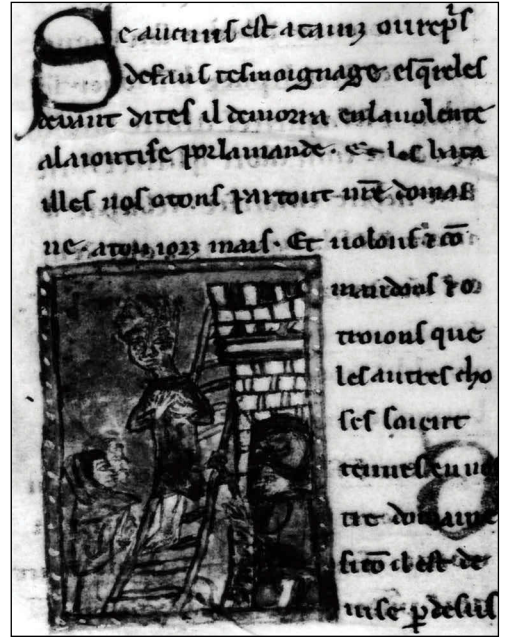 Se aucuns est atainz ou rep̄s
de faus tesmoignage es q̄reles
devant dites il demorra en la volente
a la ioutise por lamande. et les bata
illes nos otons par tout nr̄e domai
ne. a touz iorz mais. Et uolons ⁊ cō
mandons ⁊ o
troions que
les autres cho
ses soient
tenues en no
tre domaine
si cō il est de
uise p̄ desus